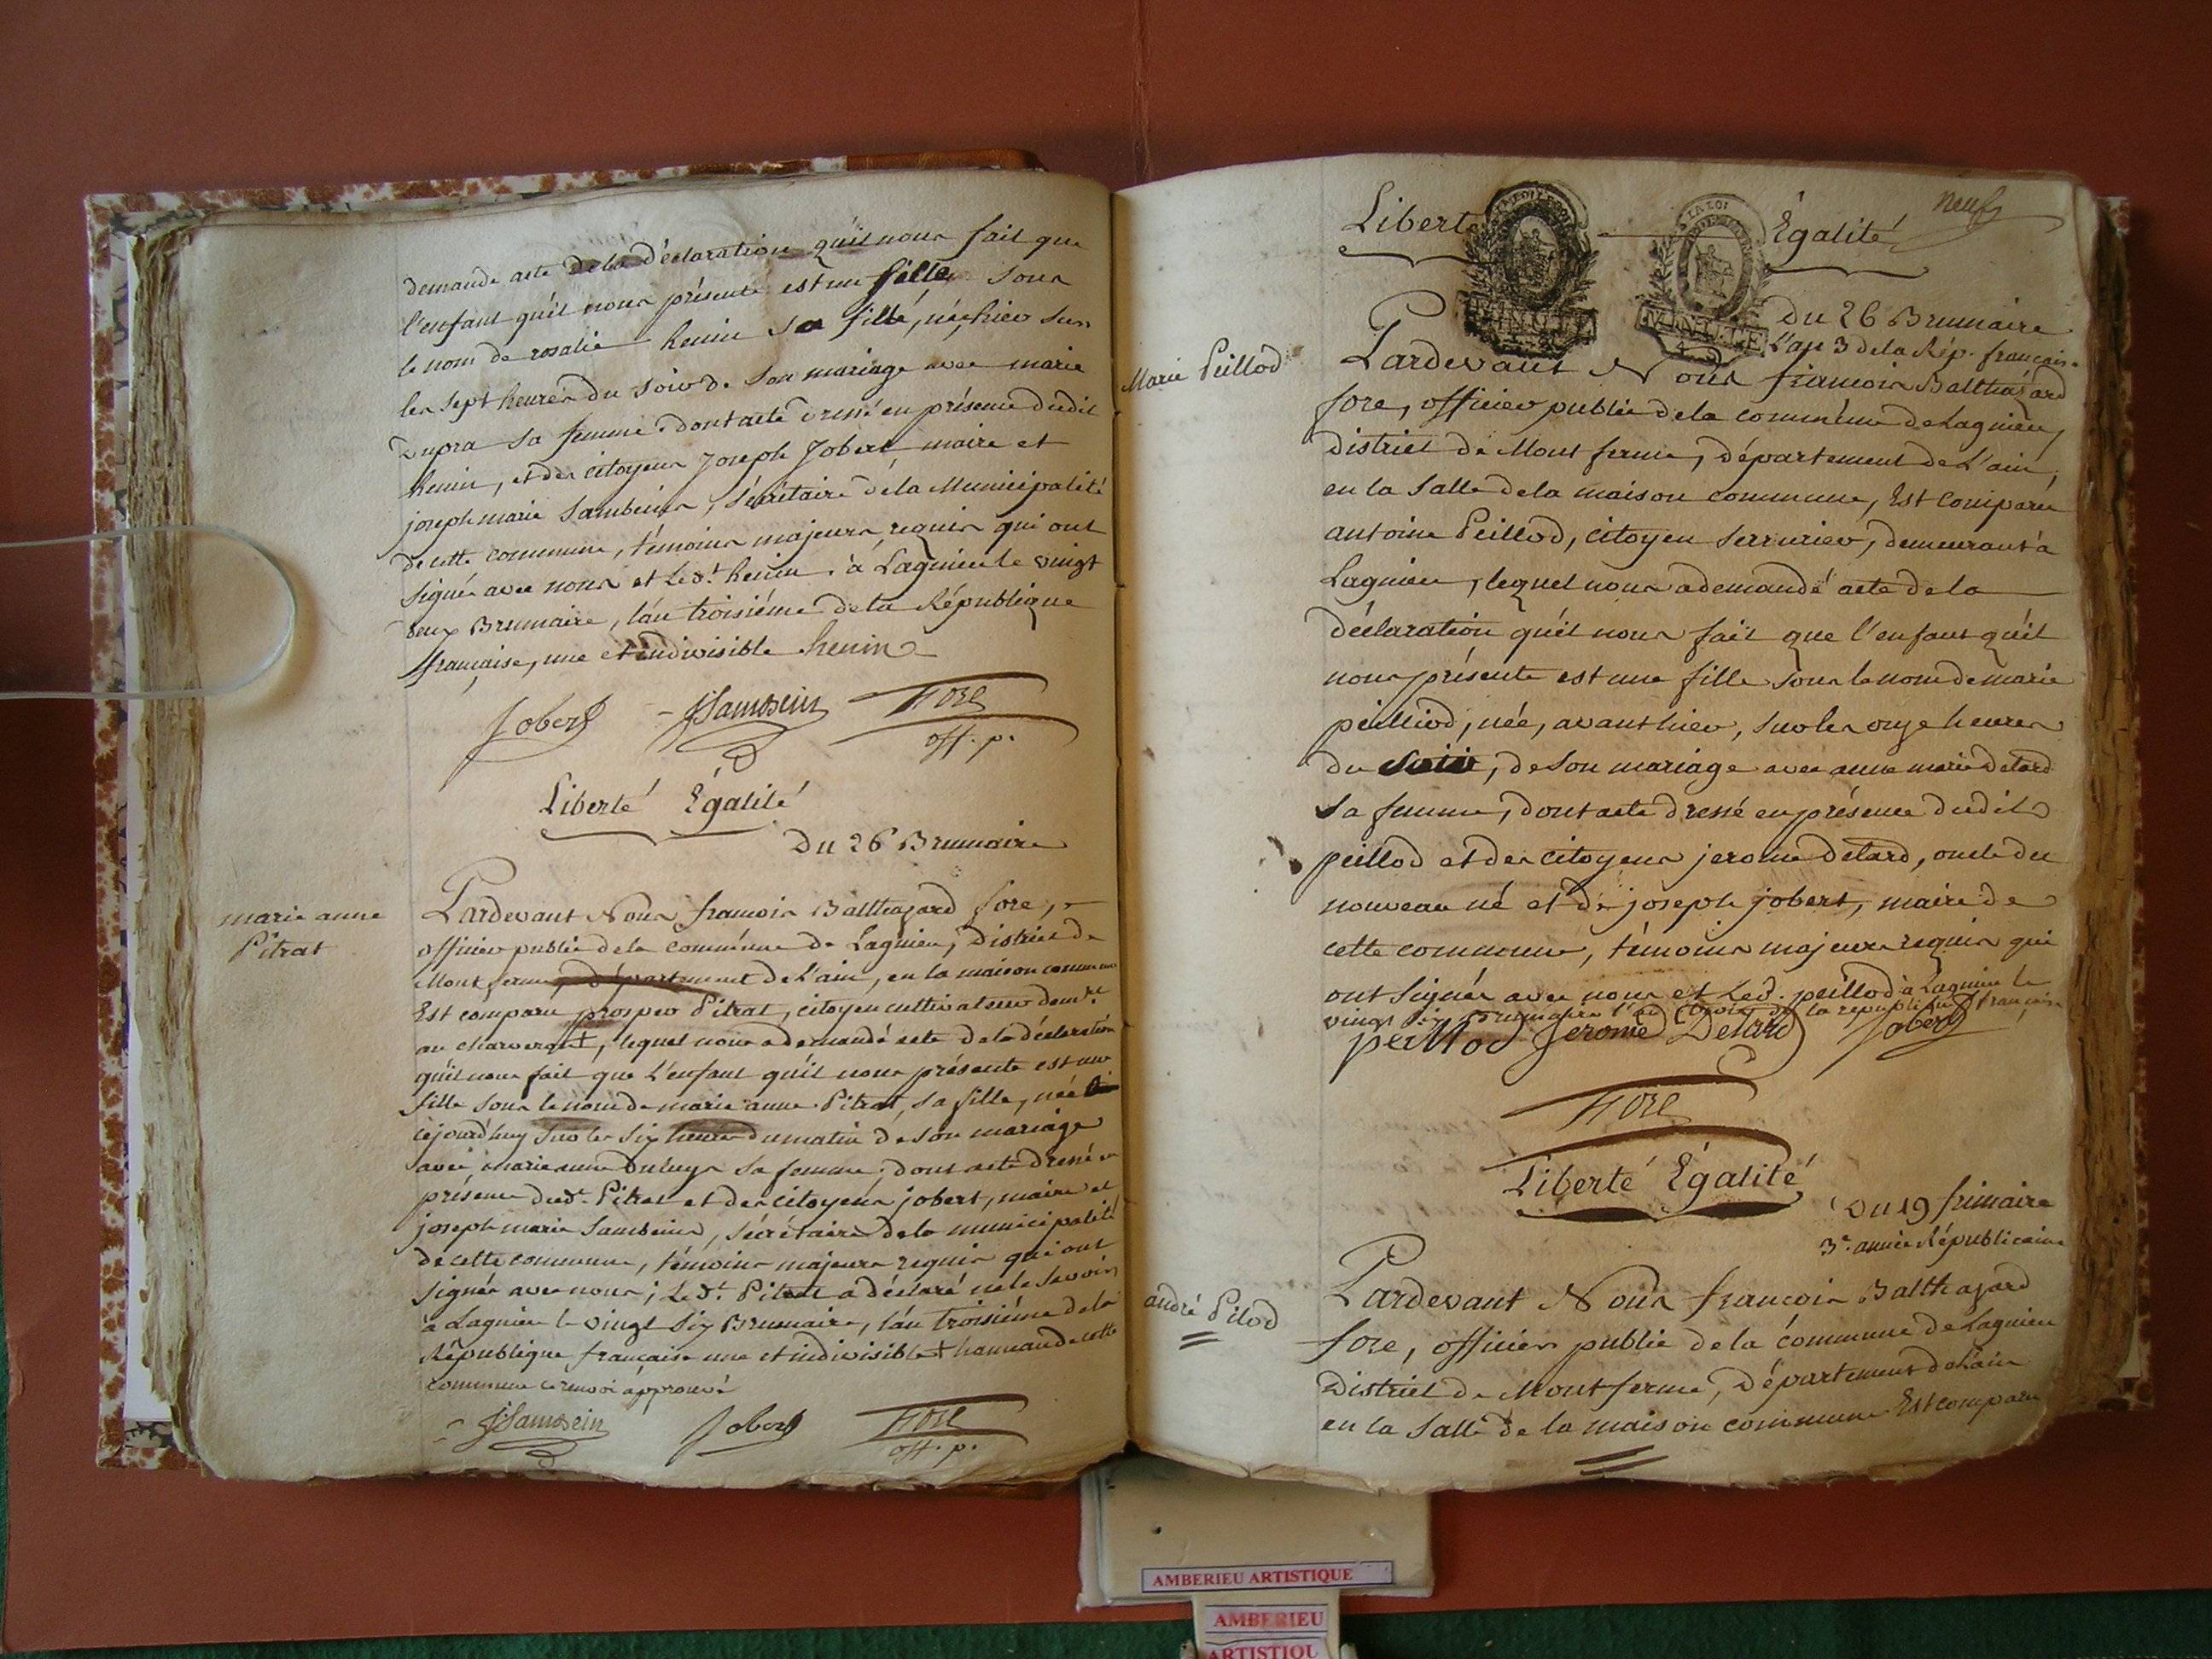 demande acte de la déclaration qu'il nous fait que
l'enfant qu'il nous présente est une fille sous
le nom de rosalie henin sa fille, née hier sur
les sept heures du soir de son mariage avec marie
Dupra sa femme. dont acte dressé en présence dudit
henin, et des citoyens Joseph Jobert maire et
joseph marie Sambein, sécrétaire de la Municipalité
de cette commune, témoins majeurs requis qui ont
signés avec nous et led.t henin. à Lagnieu le vingt
deux Brumaire, l'an troisiéme de la République
française, une et indivisible henin
Jobert JSambein Fore
off. p.
Liberté Égalité
Du 26 Brumaire
marie anne
Pitrat
Pardevant Nous francois Balthazard fore,
officier public de la commune de Lagnieu, District de
Mont ferme, département de L'ain, en la maison commune
Est comparu prosper Pitrat, citoyen cultivateur
au charveyret, lequel nous a demandé acte de la déclaration
qu'il nous fait que L'enfant qu'il nous présente est une
fille sous le nom de marie anne Pitrat, sa fille, née
cejourd'huy sur les six heures du matin de son mariage
avec marie anne sa femme; dont acte dressé en
présence dud.t Pitrat et des citoyens jobert, maire et
joseph marie Sambein, sécrétaire de la municipalité
de cette commune, témoins majeurs requis qui ont
signés avec nous; Led.t Pitrat a déclaré ne le savoir
à Lagnieu le vingt six Brumaire, l'an troisiéme de la
République française une et indivisible + hameau de cette
commune ce renvoi approuvé
JSambein Jobert Fore
off. p.
neuf
Liberté Égalité
LA LOI
MINUTE
MINUTE
Du 26 Brumaire
L'an 3 de la Rép. française
Marie Peillod
Pardevant Nous francois Balthazard
fore, officier public de la commune de Lagnieu,
district de Mont ferme, département de L'ain,
en la salle de la maison commune, Est Comparu
antoine Peillod, citoyen serrurier, demeurant à
Lagnieu, lequel nous a demandé acte de la
déclaration qu'il nous fait que l'enfant qu'il
nous présente est une fille sous le nom de marie
peilliod, née, avant hier, sur les onze heures
du soir, de son mariage avec anne marie Detard
sa femme, dont acte dressé en présence dudit
peillod et des citoyens jerome Detard, oncle du
nouveau né et de joseph jobert, maire de
cette commune, témoins majeurs requis qui
ont signés avec nous et Led. peillod à Lagnieu le
vingt six brumaire l'an trois de la republique française
peillod Jerome Detard Jobert
Fore
Liberté Égalité
Du 19 frimaire
3e. année Républicaine
andré Pilod
Pardevant Nous francois Balthazard
fore, officier public de la commune de Lagnieu
District de Montferme, Département de L'ain
en la salle de la maison commune Est comparu
AMBERIEU ARTISTIQUE
AMBERIEU
ARTISTIQU